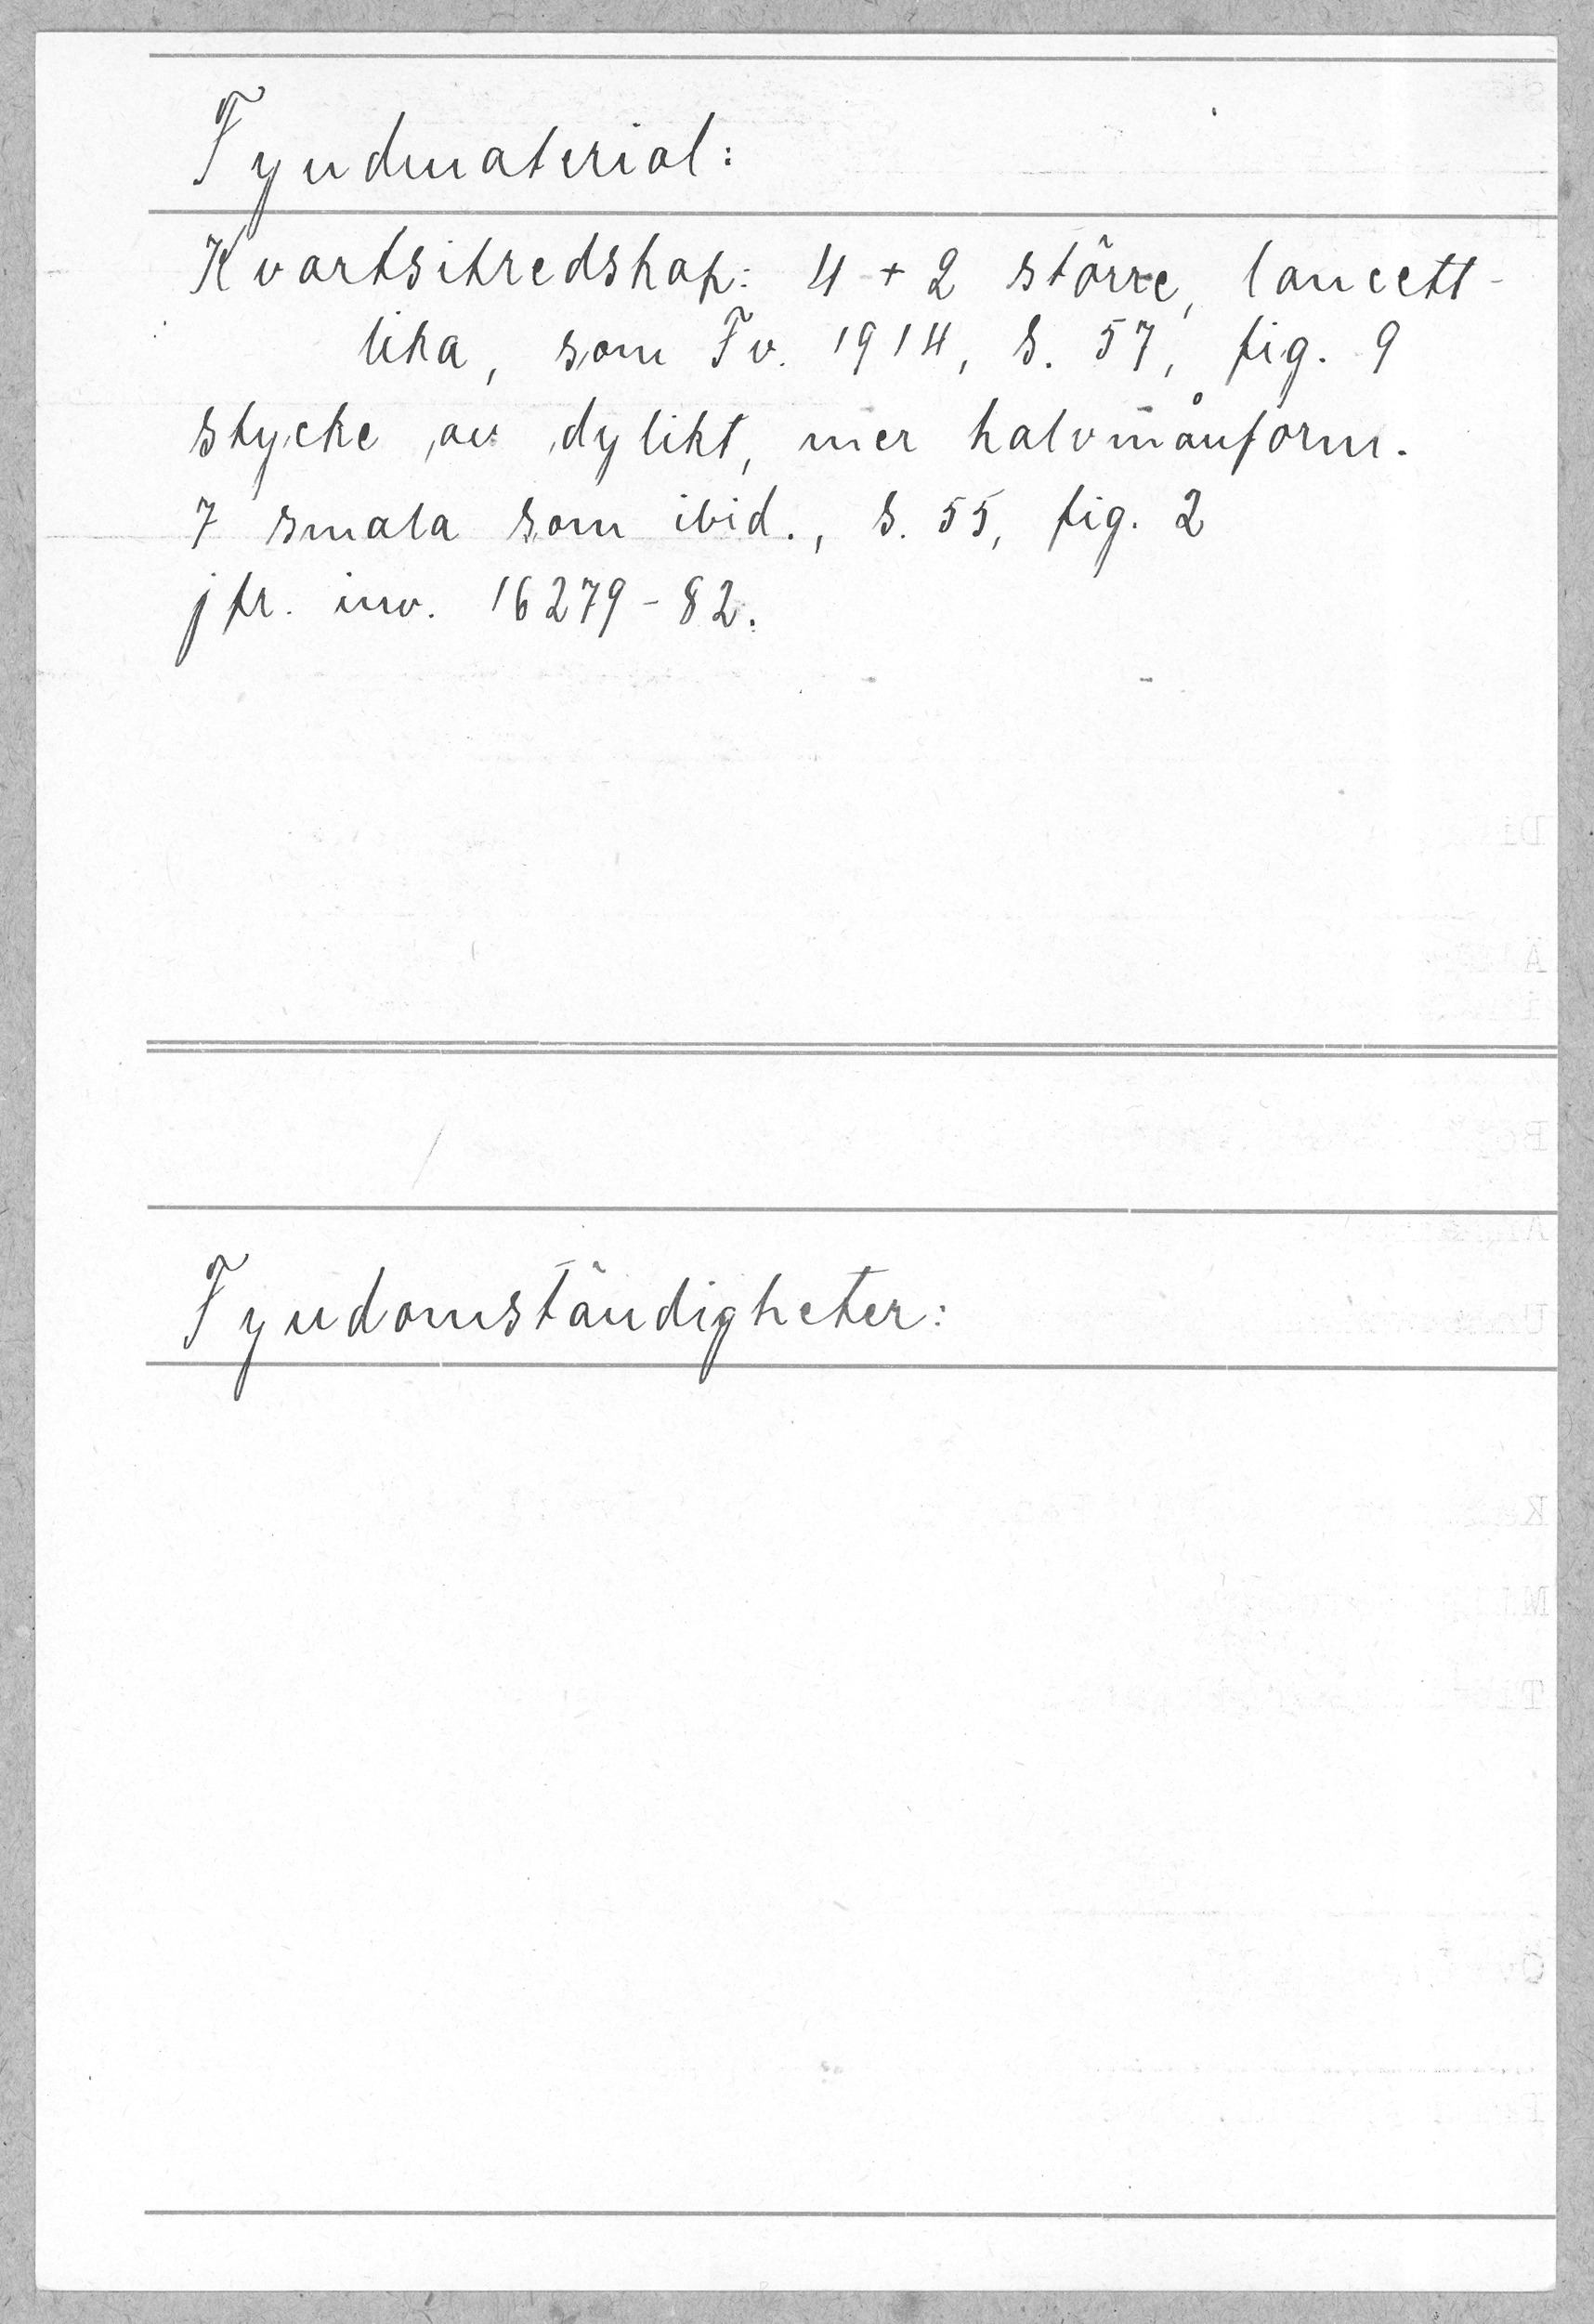 Fyndmaterial:
Kvartsitredskap: 4 + 2 större, lancett-
lika, som Fv. 1914, s. 57, fig. 9
stycke av dylikt, mer halvmånform.
7 smala som ibid., s. 55, fig. 2
jfr. inv. 16279-82.
Fyndomständigheter: